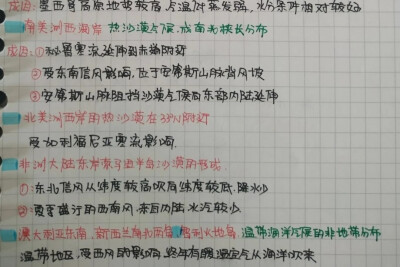 成因：墨西哥高原地势较高，气温低，蒸发弱，水分条件相对较好
南美洲西海岸 热沙漠气候，成南北狭长分布
成因：①秘鲁寒流延伸到赤道附近
②受东南信风影响，位于安第斯山脉背风坡
③安第斯山脉阻挡沙漠气候向东部内陆延伸
北美洲西岸的热沙漠在33°N附近
受加利福尼亚寒流影响
非洲大陆东岸索马里半岛沙漠的形成
①东北信风从纬度较高吹向纬度较低，降水少
②夏季盛行的西南风，来自内陆水汽较少
澳大利亚东南、新西兰南北两岛 温带海洋气候的非地带分布
温带地区，受西风的影响，终年有暖湿空气从海洋吹来